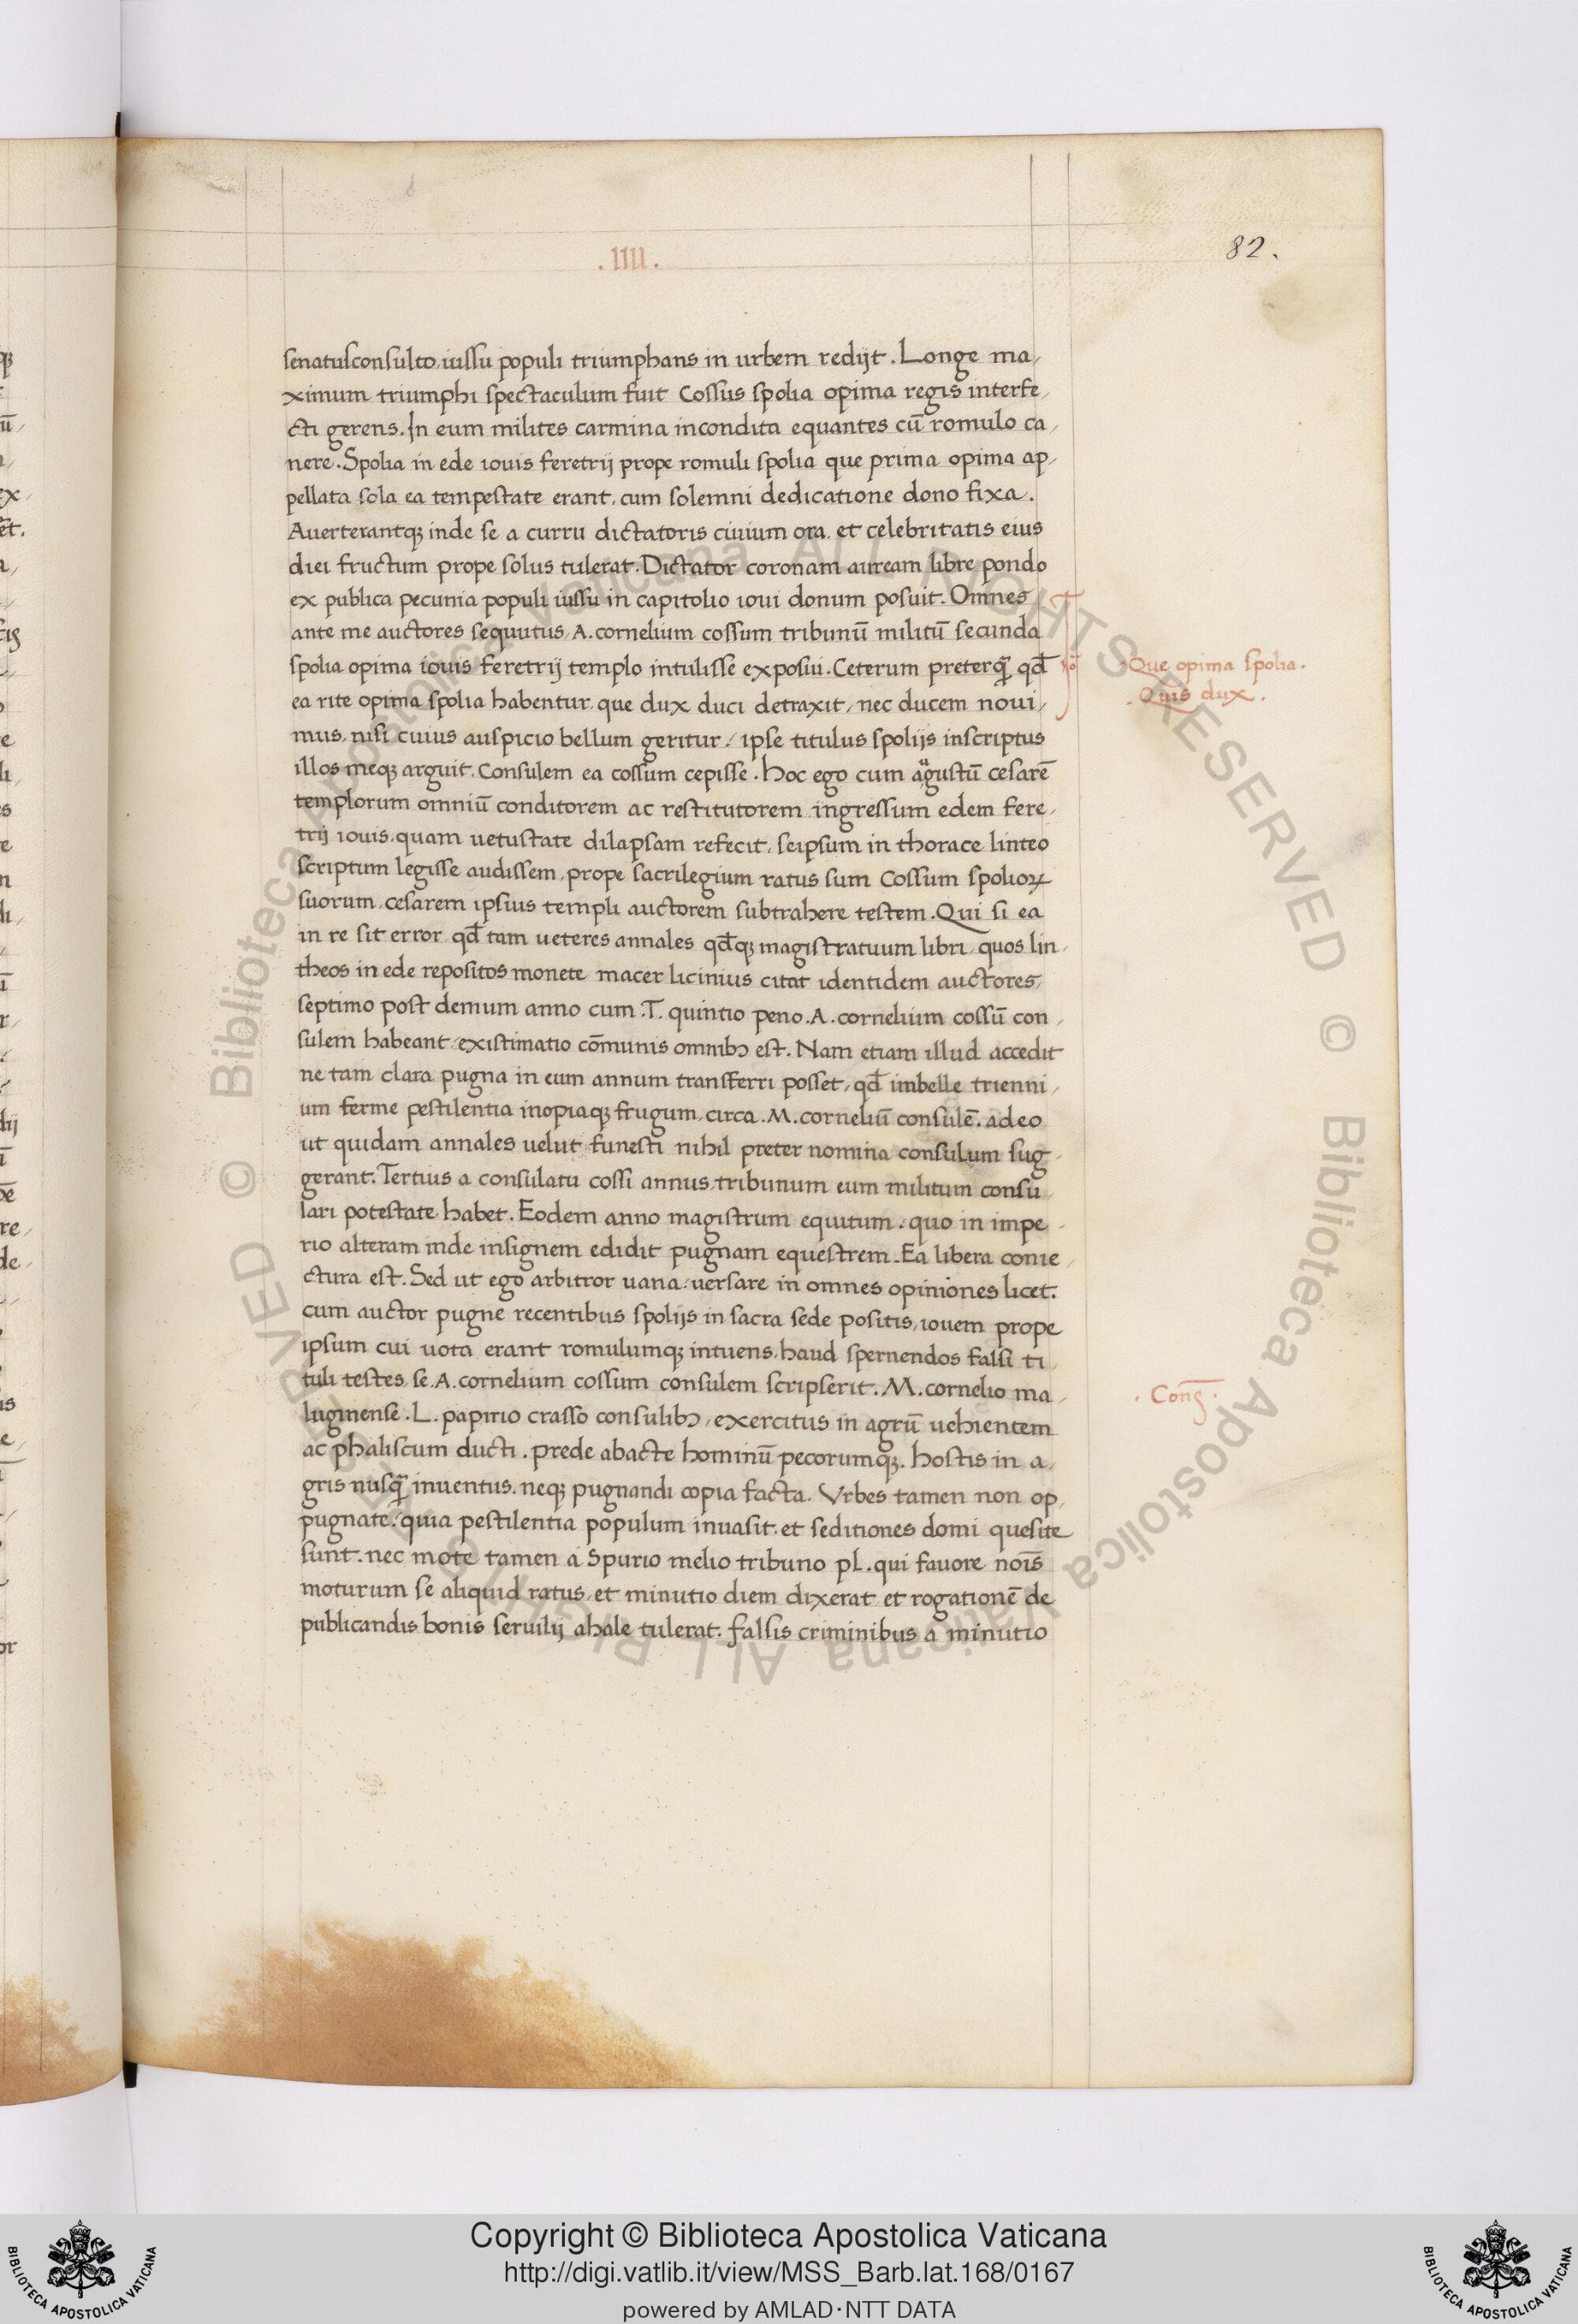 .IIII.
82.
senatusconsulto, iussu populi triumphans in urbem redijt. Longe ma,
ximum triumphi spectaculum fuit Cossus spolia opima regis interfe,
cti gerens. In eum milites carmina incondita equantes cū romulo ca,
nere. Spolia in ede iouis feretrij prope romuli spolia que prima opima ap,
pellata sola ea tempestate erant, cum solemni dedicatione dono fixa.
Auerterantqꝫ inde se a curru dictatoris ciuium ora, et celebritatis eius
diei fructum prope solus tulerat. Dictator coronam auream libre pondo
ex publica pecunia populi iussu in capitolio ioui donum posuit. Omnes
ante me auctores sequutus, A. cornelium cossum tribunū militū secunda
spolia opima iouis feretrij templo intulisse exposui. Ceterum preterqꝫ̄ qd̄
Que opima spolia.
ea rite opima spolia habentur, que dux duci detraxit, nec ducem noui,
.Quis dux.
mus, nisi cuius auspicio bellum geritur, ipse titulus spolijs inscriptus
illos meqꝫ arguit, Consulem ea cossum cepisse. hoc ego cum agustū cesarē
templorum omniū conditorem ac restitutorem ingressum edem fere,
trij iouis, quam uetustate dilapsam refecit, seipsum in thorace linteo
scriptum legisse audissem, prope sacrilegium ratus sum Cossum spolioꝝ
suorum, cesarem ipsius templi auctorem subtrahere testem. Qui si ea
in re sit error qd̄ tam ueteres annales qd̄qꝫ magistratuum libri, quos lin,
theos in ede repositos monete macer licinius citat identidem auctores,
septimo post demum anno cum .T. quintio peno .A. cornelium cossū con,
sulem habeant, existimatio cōmunis omnibꝫ est. Nam etiam illud accedit
ne tam clara pugna in eum annum transferri posset, qd̄ imbelle trienni,
um ferme pestilentia inopiaqꝫ frugum, circa .M. corneliū consulē. adeo
ut quidam annales uelut funesti nihil preter nomina consulum sug,
gerant. Tertius a consulatu cossi annus, tribunum eum militum consu
lari potestate habet. Eodem anno magistrum equitum, quo in impe,
rio alteram inde insignem edidit pugnam equestrem. Ea libera conie,
ctura est. Sed ut ego arbitror uana, uersare in omnes opiniones licet.
cum auctor pugne recentibus spolijs in sacra sede positis, iouem prope
ipsum cui uota erant romulumqꝫ intuens, haud spernendos falsi ti,
tuli testes, se .A. cornelium cossum consulem scripserit. M. cornelio ma,
.Cons̄.
luginense .L. papirio crasso consulibꝫ, exercitus in agrū uehientem
ac phaliscum ducti. prede abacte hominū pecorumqꝫ. hostis in a,
gris nusqꝫ̄ inuentus. neqꝫ pugnandi copia facta. Vrbes tamen non op,
pugnate, quia pestilentia populum inuasit, et seditiones domi quesite
sunt. nec mote tamen a Spurio melio tribuno pl. qui fauore nōis
moturum se aliquid ratus, et minutio diem dixerat et rogationē de
publicandis bonis seruilij ahale tulerat. falsis criminibus a minutio
Copyright © Biblioteca Apostolica Vaticana
http://digi.vatlib.it/view/MSS_Barb.lat.168/0167
powered by AMLAD·NTT DATA